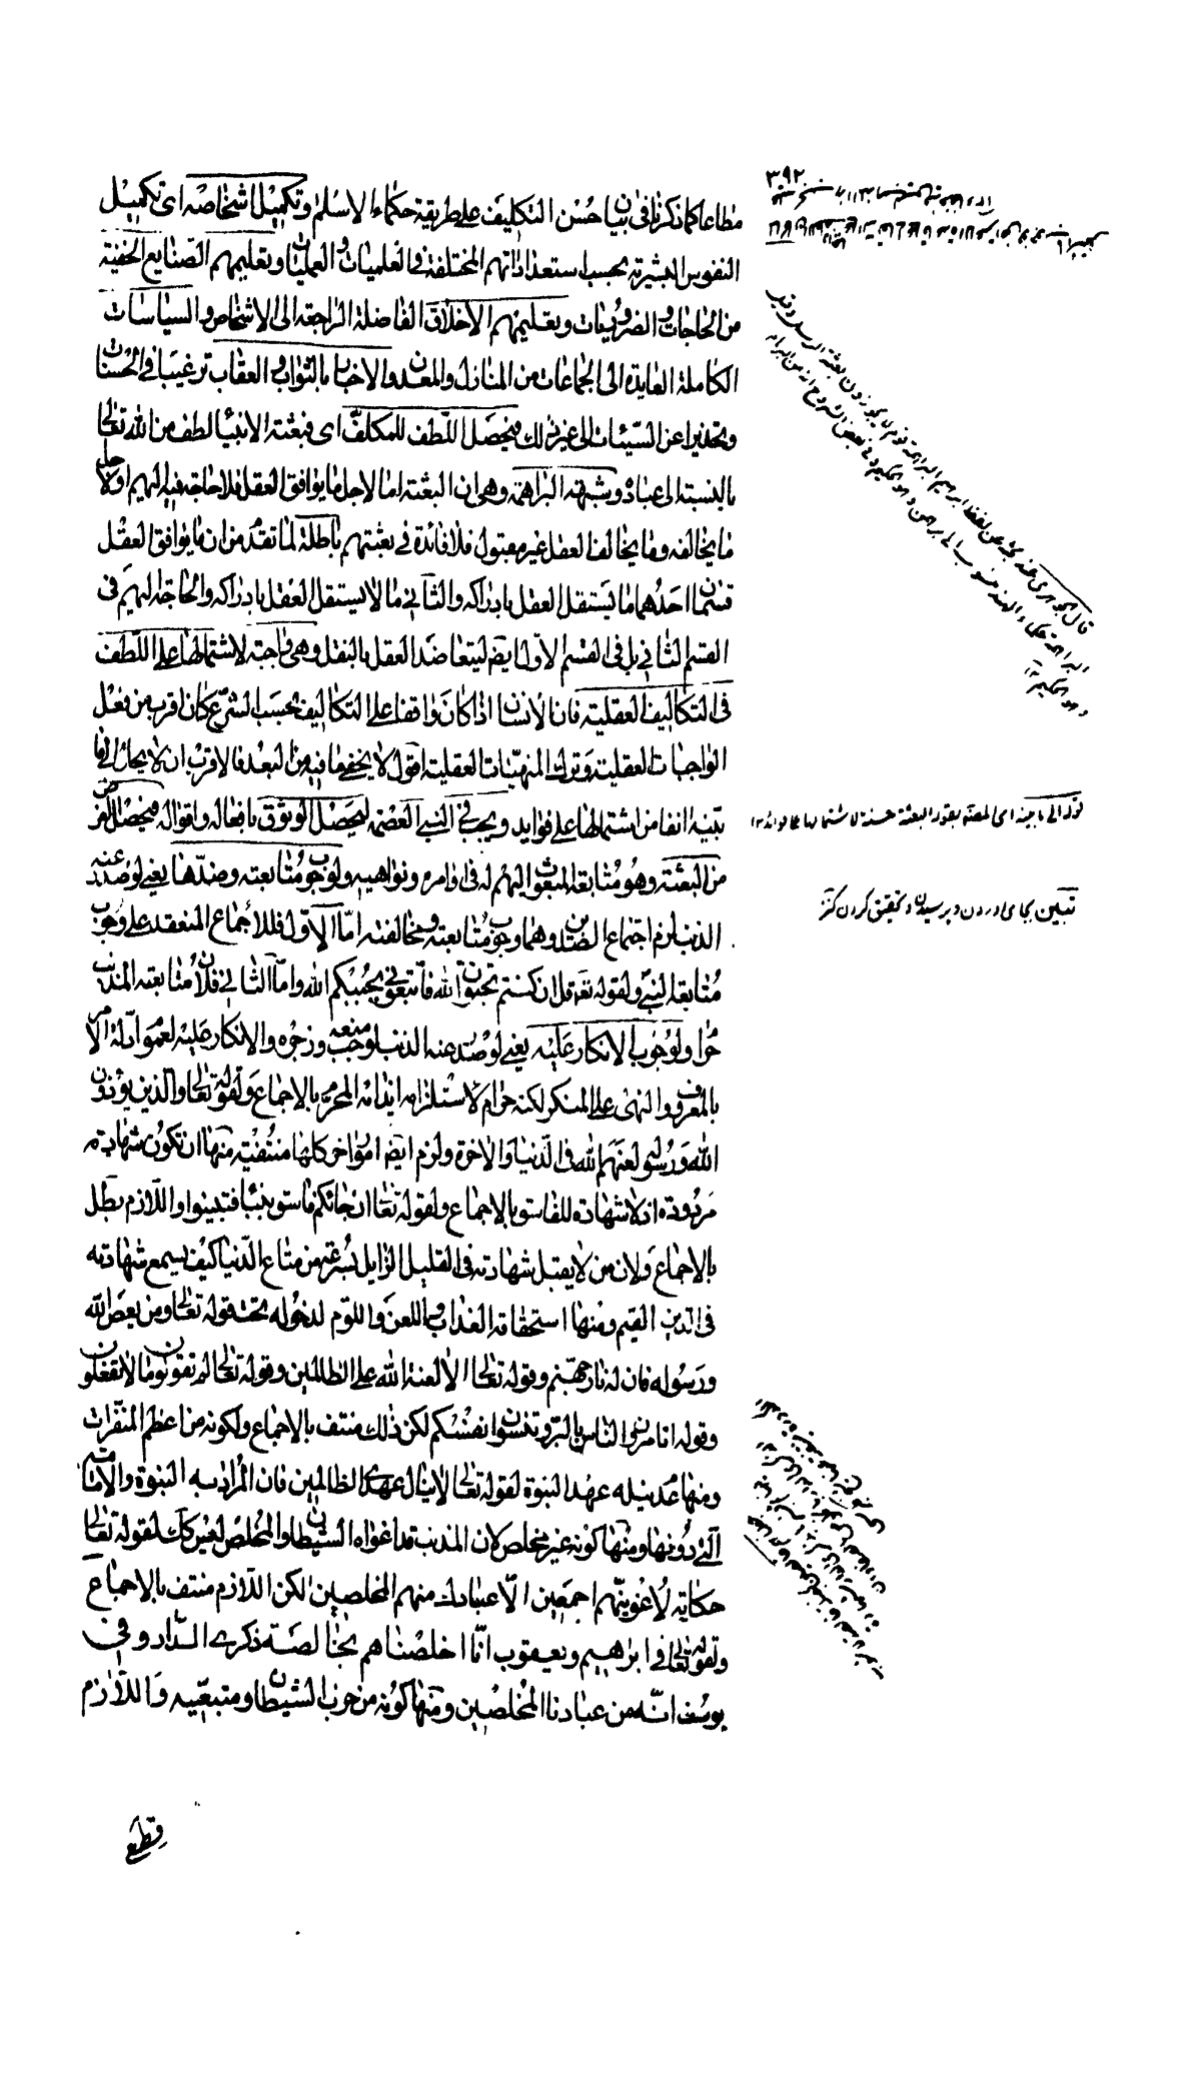 ٣٩٢
مطاعا كما ذكرنا في بيان حسن التكليف على طريقة حكماء الاسلام وتكميل اشخاصه اى تكميل
النفوس البشرية بحسب استعداداتهم المختلفة في العلميات والعمليات وتعليمهم الصنايع الخفية
من الحاجات والضروريات وتعليمهم الاخلاق الفاضلة الراجعة الى الاشخاص والسياسات
الكاملة العايدة الى الجماعات من المنازل والمدن والاخبار بالثواب والعقاب ترغيبا في الحسنات
وتحذيرا عن السيئات الى غير ذلك فيحصل اللطف للمكلف اى فبعثة الانبياء لطف من الله تعالى
بالنسبة الى عباده وشبهة البراهمة وهى ان البعثة اما لاجل ما يوافق العقل فلا حاجة فيه اليهم او لاجل
ما يخالفه وما يخالف العقل غير مقبول فلا فائدة في بعثتهم باطلة لما تقدم من ان ما يوافق العقل
قسمان احدهما ما يستقل العقل بادراكه والثاني ما لا يستقل العقل بادراكه والحاجة اليهم في
القسم الثاني بل في القسم الاول ايضا ليتعاضد العقل بالنقل وهى واجبة لاشتمالها على اللطف
في التكاليف العقلية فان الانسان اذا كان واقفا على التكاليف بحسب الشرع كان اقرب من فعل
الواجبات العقلية وترك المنهيات العقلية اقول لا يخفى ما فيه من البعد فالاقرب ان يحال الى ما
بينه انفا من اشتمالها على فوايد ويجب في النبي العصمة ليحصل الوثوق بافعاله واقواله فيحصل الغرض
من البعثة وهو متابعة المبعوث اليهم له في اوامره ونواهيه ولوجوب متابعته وضدها يعنى لو صدر عنه
الذنب لزم اجتماع الضدين وهما وجوب متابعته ومخالفته اما الاول فللاجماع المنعقد على وجوب
متابعة النبي ولقوله تع قل ان كنتم تحبون الله فاتبعونى يحببكم الله واما الثاني فلان متابعة المذنب
حرام ولوجوب الانكار عليه يعنى لو صدر عنه الذنب لوجب منعه وزجره والانكار عليه لعموم ادلة الامر
بالمعروف والنهى على المنكر لكنه حرام لاستلزامه ايذائه المحرم بالاجماع ولقوله تعالى والذين يؤذون
الله ورسوله لعنهم الله في الدنيا والاخرة ولزم ايضا امور اخر كلها منتفية منها ان تكون شهادته
مردودة اذ لا شهادة للفاسق بالاجماع ولقوله تعالى ان جائكم فاسق بنبأ فتبينوا واللازم بطل
بالاجماع ولان من لا يقبل شهادته في القليل الزايل بسرعة من متاع الدنيا كيف يسمع شهادته
في الدين القيم ومنها استحقاقه العذاب واللعن واللوم لدخوله تحت قوله تعالى ومن يعص الله
ورسوله فان له نار جهنم وقوله تعالى الا لعنة الله على الظالمين وقوله تعالى لم تقولون ما لا تفعلون
وقوله اتامرون الناس بالبر وتنسون انفسكم لكن ذلك منتف بالاجماع ولكونه من اعظم المنفرات
ومنها عدم نيله عهد النبوة لقوله تعالى لا ينال عهدى الظالمين فان المراد به النبوة والامامة
التى دونها ومنها كونه غير مخلص لان المذنب قد اغواه الشيطان والمخلص ليس كذلك لقوله تعالى
حكاية لاغوينهم اجمعين الا عبادك منهم المخلصين لكن اللازم منتف بالاجماع
ولقوله تعالى في ابرهيم ويعقوب انا اخلصناهم بخالصة ذكرى الدار وفي
يوسف انه من عبادنا المخلصين ومنها كونه من حزب الشيطان ومتبعيه واللازم
قوله الى ما بينه اى المصنف بقوله البعثة حسنة لاشتمالها على فوائد ١٢
تبين بجاى اوردن و پرسيدن و تحقيق كردن كنز
قطع